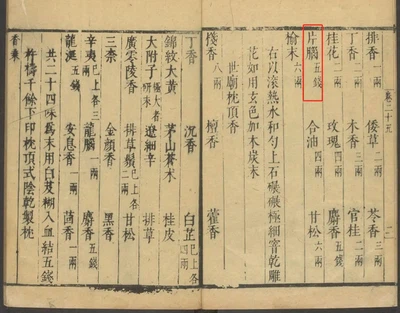 卷二十五
排香一兩 倭草二兩 苓香三兩
丁香二兩 木香三兩 官桂二兩
桂花二兩 玫瑰四兩 麝香五錢
片腦五錢 合油四兩 甘松六兩
榆末六兩
右以滾熱水和勻上石碾碾極細窨乾雕
花如用玄色加木炭末
世廟枕頂香
棧香八兩 檀香 藿香
丁香 沉香 白芷已上各四兩
錦紋大黃 茅山蒼朮 桂皮
大附子極大者研末 遼細辛 排草
廣零陵香 排草鬚已上各二兩 甘松
三柰 金顏香 黑香
辛夷已上各三兩 龍腦一兩 麝香五錢
龍涎五錢 安息香一兩 茴香一兩
共二十四味為末用白芨糊入血結五錢
杵擣千餘下印枕頂式陰乾製枕
香乘